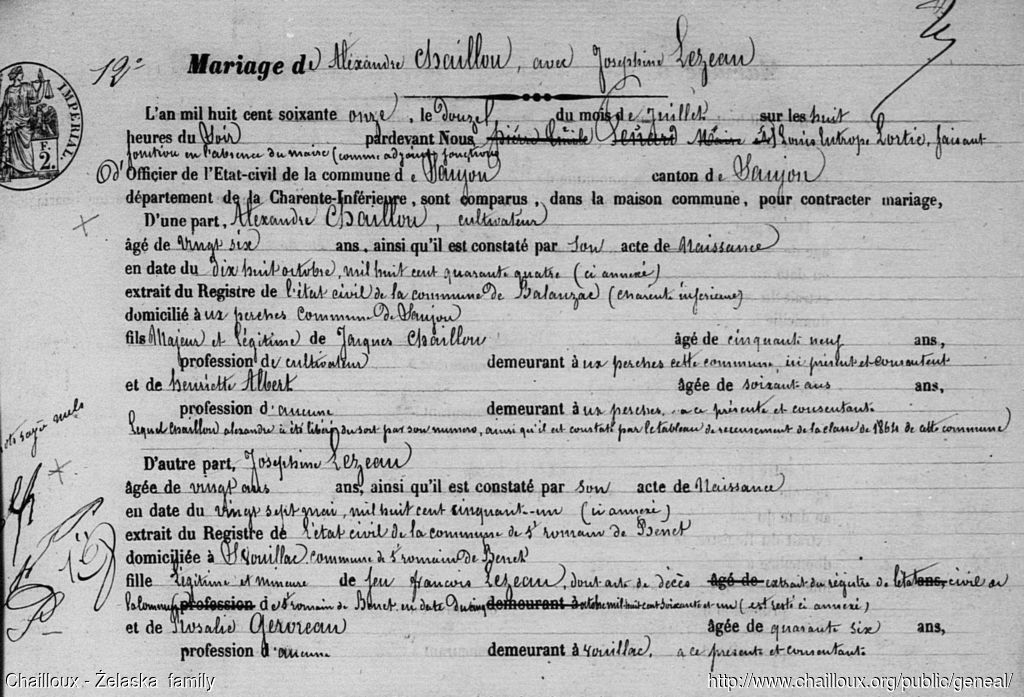 12e Mariage de Alexandre Chaillou, avec Josephine Lezeau
IMPERIAL
F.
2.
L'an mil huit cent soixante onze, le Douze du mois de Juillet sur les huit
heures du Soir pardevant Nous Lenard Maire Louis Eutrope Lortie, faisant
fonction en l'absence du maire (comme adjoint)
d'Officier de l'Etat-civil de la commune de Saujon canton de Saujon
département de la Charente-Inférieure, sont comparus, dans la maison commune, pour contracter mariage,
D'une part, Alexandre Chaillou, cultivateur
âgé de vingt six ans, ainsi qu'il est constaté par son acte de Naissance
en date du dix huit octobre, mil huit cent quarante quatre (ci annexé)
extrait du Registre de l'état civil de la commune de Balanzac (charente inferieure)
domicilié à ux perches commune de Saujon
fils Majeur et légitime de Jacques Chaillou âgé de cinquante neuf ans,
profession de cultivateur demeurant à ux perches cette commune, ici présent et consentant
et de henriette Albert âgée de soixante ans ans,
profession d'aucune demeurant à ux perches, a ce présente et consentante
Lequel Chaillou alexandre à été libéré du sort par son numero, ainsi qu'il est constaté par le tableau de recensement de la classe de 1864 de cette commune
mots rayés nuls
D'autre part, Josephine Lezeau
âgée de vingt ans ans, ainsi qu'il est constaté par son acte de Naissance
en date du vingt sept mai, mil huit cent cinquante-un (ci annexé)
extrait du Registre de l'état civil de la commune de St romain de Benet
domiciliée à commune de St romain de Benet
fille légitime et mineure de feu francois Lezeau, dont acte de décès âgé de extrait du régistre de l'état ans, civil de
la commune profession de St romain de Benet en date du demeurant à octobre mil huit cent soixante et un (est resté ci annexé)
et de Rosalie Gervreau âgée de quarante six ans,
profession d'aucune demeurant à, a ce présente et consentante
Chailloux - Żelaska family http://www.chailloux.org/public/geneal/